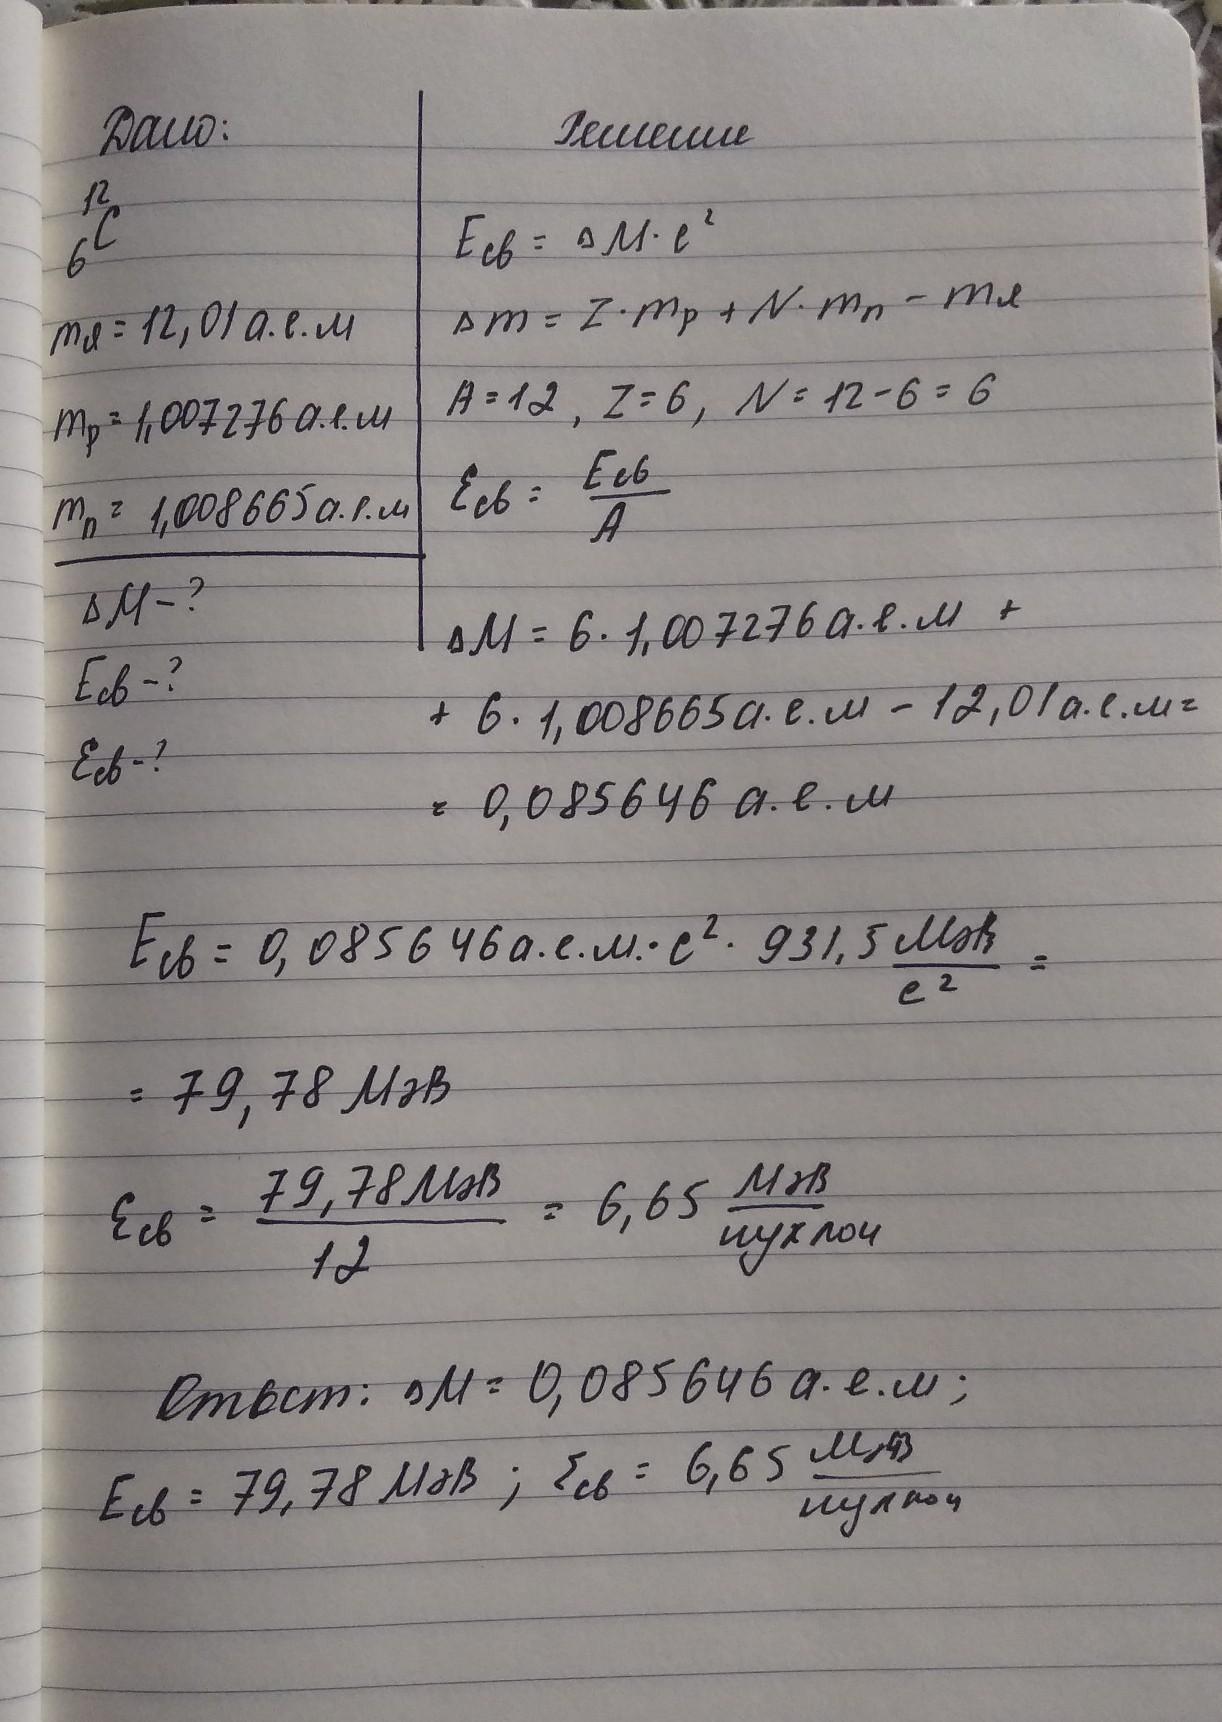 Дано:
¹²₆C
mя = 12,01 а.е.м
mp = 1,007276 а.е.м
mn = 1,008665 а.е.м
ΔM - ?
Eсв - ?
Ɛсв - ?
Решение
Eсв = ΔM · c²
Δm = Z · mp + N · mn - mя
A = 12, Z = 6, N = 12 - 6 = 6
Ɛсв = Eсв / A
ΔM = 6 · 1,007276 а.е.м +
+ 6 · 1,008665 а.е.м - 12,01 а.е.м =
= 0,085646 а.е.м
Eсв = 0,085646 а.е.м. · c² · 931,5 МэВ / c² =
= 79,78 МэВ
Ɛсв = 79,78 МэВ / 12 = 6,65 МэВ / нуклон
Ответ: ΔM = 0,085646 а.е.м;
Eсв = 79,78 МэВ ; Ɛсв = 6,65 МэВ / нуклон